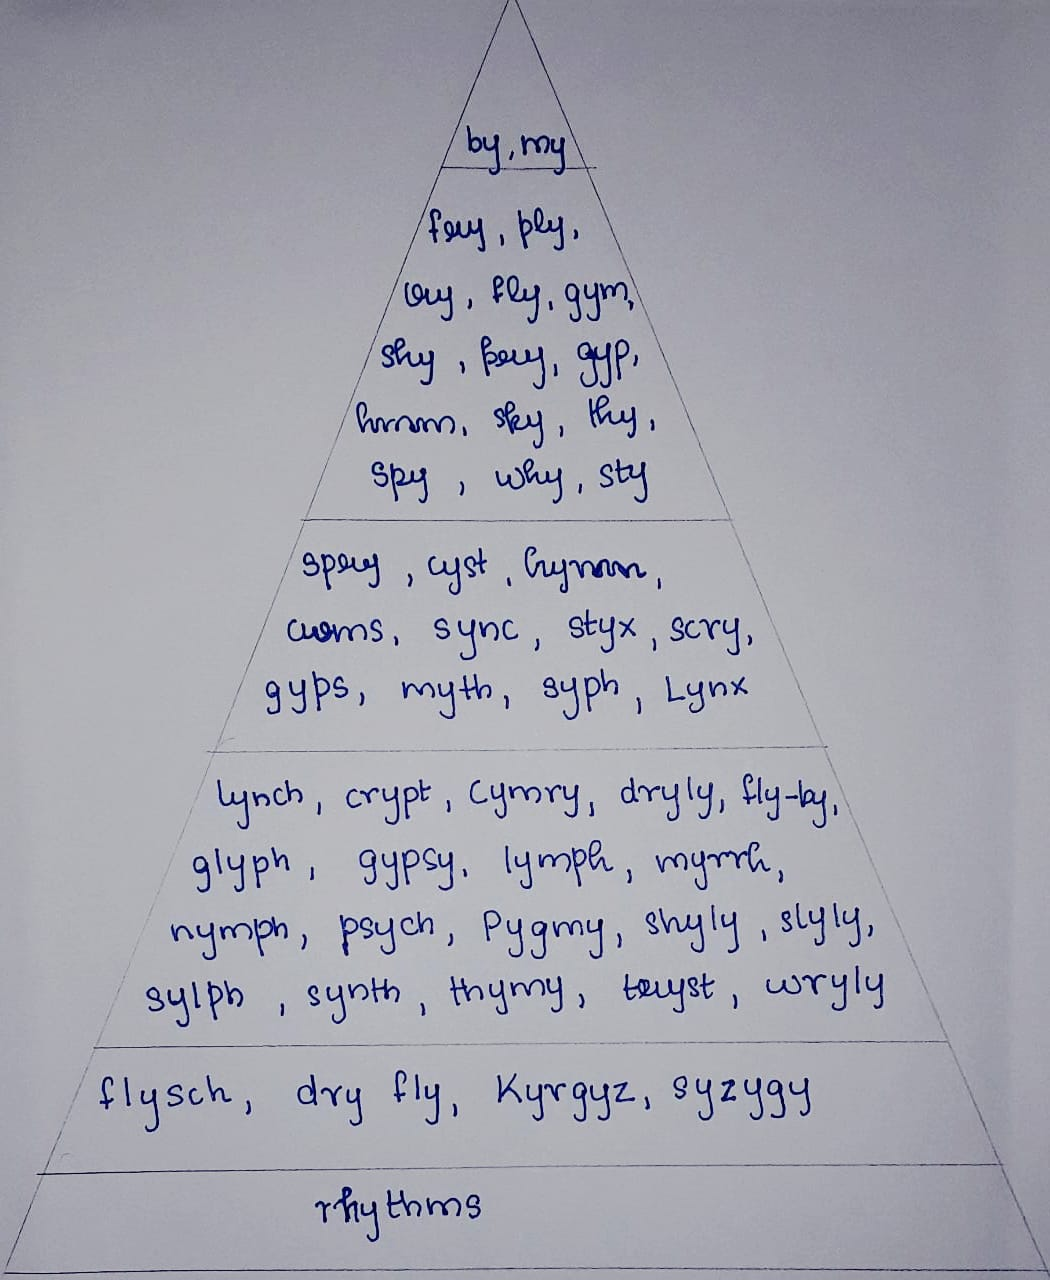 by, my
fry, ply,
cry, fly, gym,
shy, pry, gyp,
hmm, sky, thy,
spy, why, sty
spry, cyst, hymn,
cwms, sync, styx, scry,
gyps, myth, syph, Lynx
lynch, crypt, Cymry, dryly, fly-by,
glyph, gypsy, lymph, myrrh,
nymph, psych, Pygmy, shyly, slyly,
sylph, synth, thymy, tryst, wryly
flysch, dry fly, Kyrgyz, syzygy
rhythms